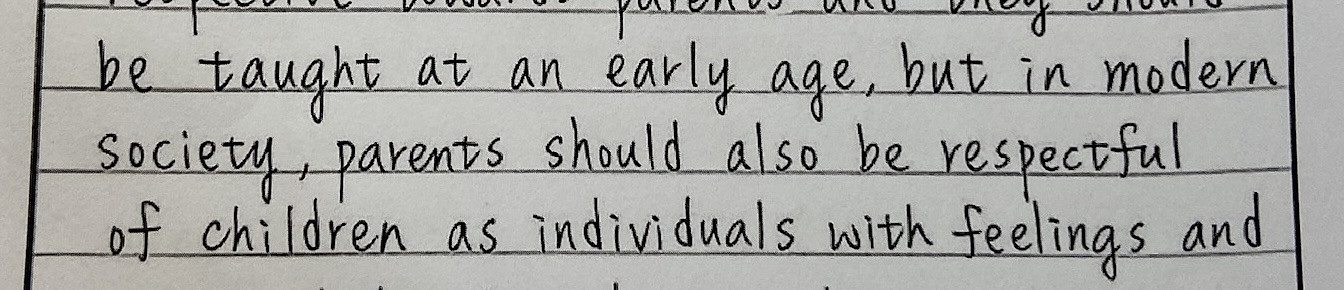 parents and they should
be taught at an early age, but in modern
society, parents should also be respectful
of children as individuals with feelings and